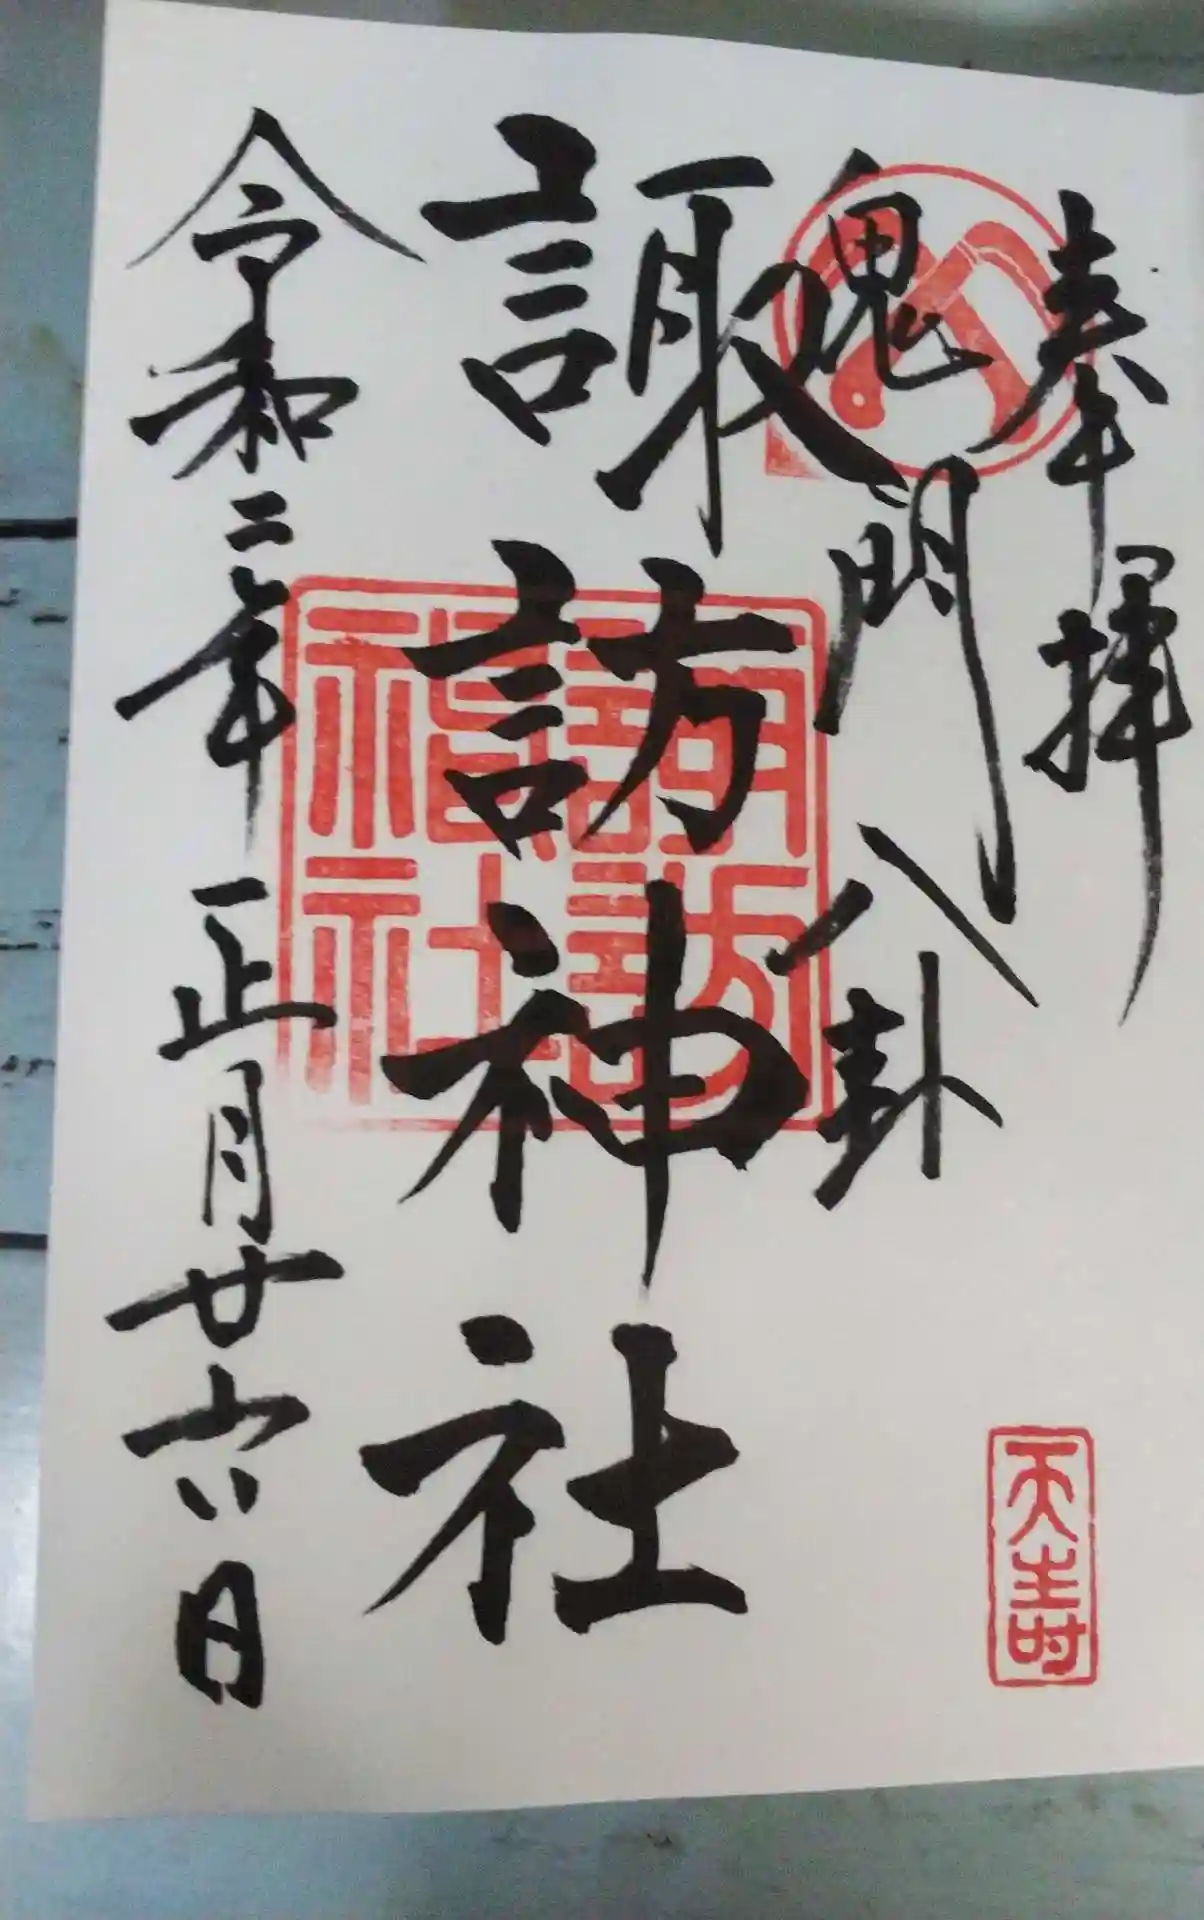 奉拝
鬼門八卦
諏訪神社
令和二年正月廿六日
諏訪
神社